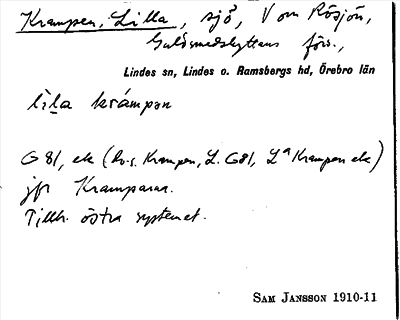 Krampen, Lilla, sjö, V om Rösjön,
Guldsmedshyttans förs.,
Lindes sn, Lindes o. Ramsbergs hd, Örebro län
lìḷa krámpən
G 81, ek (hvs. Krampen, L. G81, Lª Krampen ek)
jfr Kramparna.
Tillh. östra systemet.
SAM JANSSON 1910-11